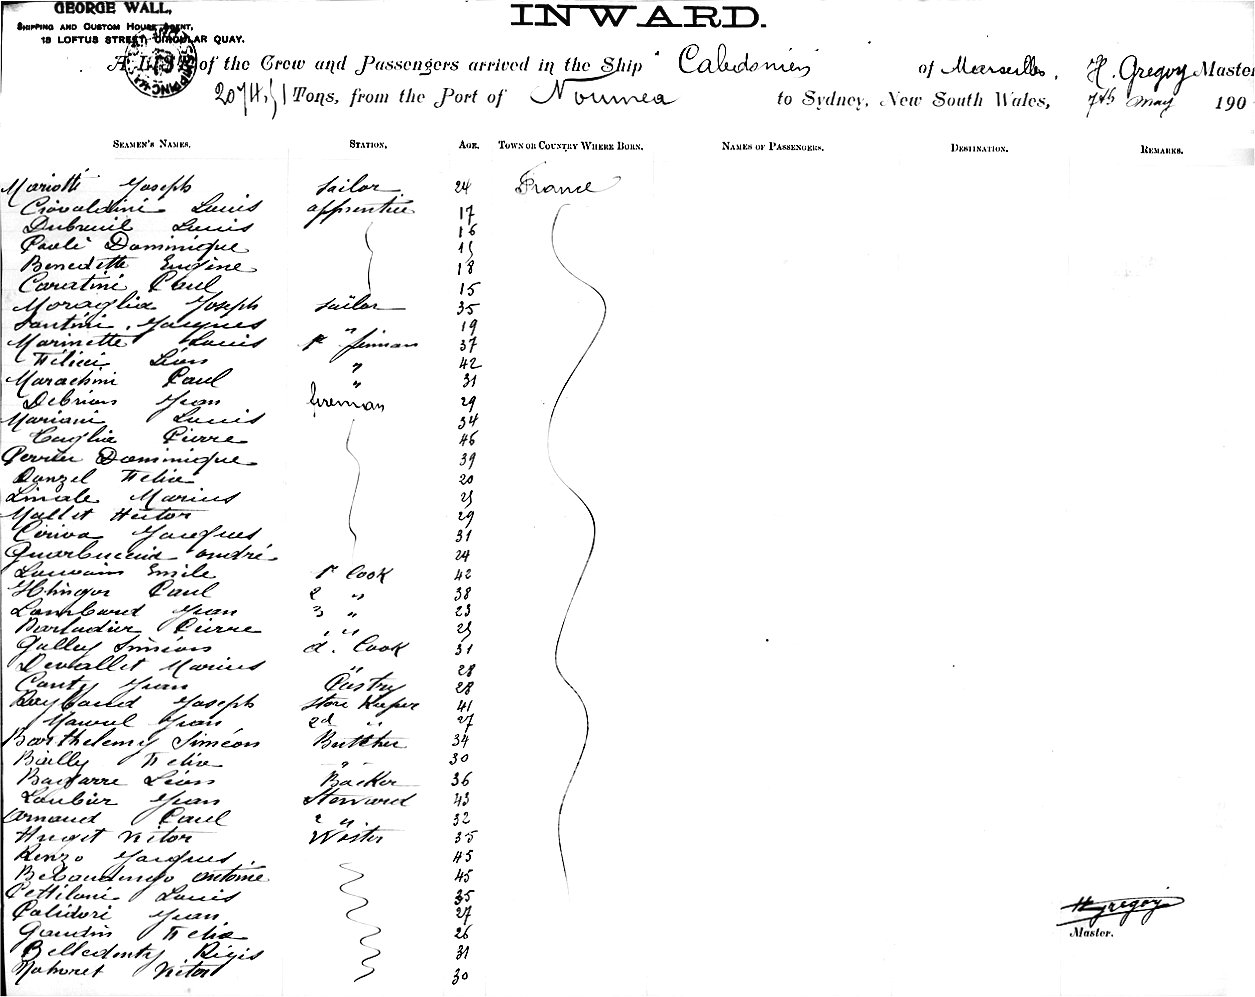 GEORGE WALL,
SHIPPING AND CUSTOM HOUSE AGENT,
18 LOFTUS STREET, CIRCULAR QUAY.
INWARD.
A LIST of the Crew and Passengers arrived in the Ship Caledonien of Marseilles, H. Gregory Master
Tons, from the Port of Noumea to Sydney, New South Wales, 7th May 190
SEAMEN'S NAMES. STATION. AGE. TOWN OR COUNTRY WHERE BORN. NAMES OF PASSENGERS. DESTINATION. REMARKS.
Mariotti Joseph Sailor 24 France
Ciovaldini Louis apprentice 17
Dubreuil Louis 16
Paoli Dominique 15
Benedette Eugène 18
Caratini Paul 15
Moraglia Joseph Sailor 35
Santini Jacques " 19
Marinette Louis 1r fireman 37
Félicci Léon " 42
Marachini Paul " 31
Debrion Jean fireman 29
Mariani Louis 34
Pierre 46
Perrier Dominique 39
Danzel Félix 20
Limale Marius 25
Mallet Hector 29
Jacques 31
André 24
Louvain Emile 1r Cook 42
Paul 2 " 38
Lambard Jean 3 " 23
Barladier Pierre " 25
Galley Siméon a. Cook 31
Devallet Marius " 28
Canty Jean Pastry 28
Reybaud Joseph Store Keeper 41
Maurel Jean 2d " 27
Barthelemy Siméon Butcher 34
Bailly Félix " 30
Bagarre Léon Backer 36
Loubier Jean Steward 43
Arnaud Paul 2 " 32
Huget Victor Waiter 35
Renzo Jacques 45
Antoine 45
Pettiloni Louis 35
Palidori Jean 27
Gaudin Félix 26
Belledenty Régis 31
Nahoret Victor 30
H Gregory
Master.